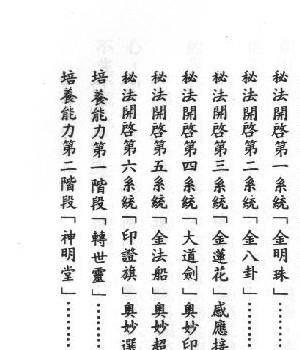 秘法開啓第一系統「金明珠」⋯⋯
秘法開啓第二系統「金八卦」⋯⋯
秘法開啓第三系統「金蓮花」感應接
秘法開啓第四系統「大道劍」奧妙印
秘法開啓第五系統「金法船」奧妙超
秘法開啓第六系統「印證旗」奧妙選
培養能力第一階段「轉世靈」⋯⋯
培養能力第二階段「神明堂」⋯⋯